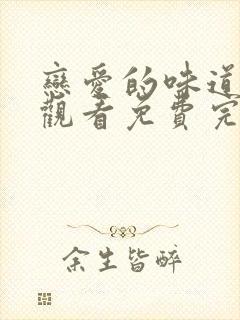 戀愛的味道
觀看免費完
余生皆醉